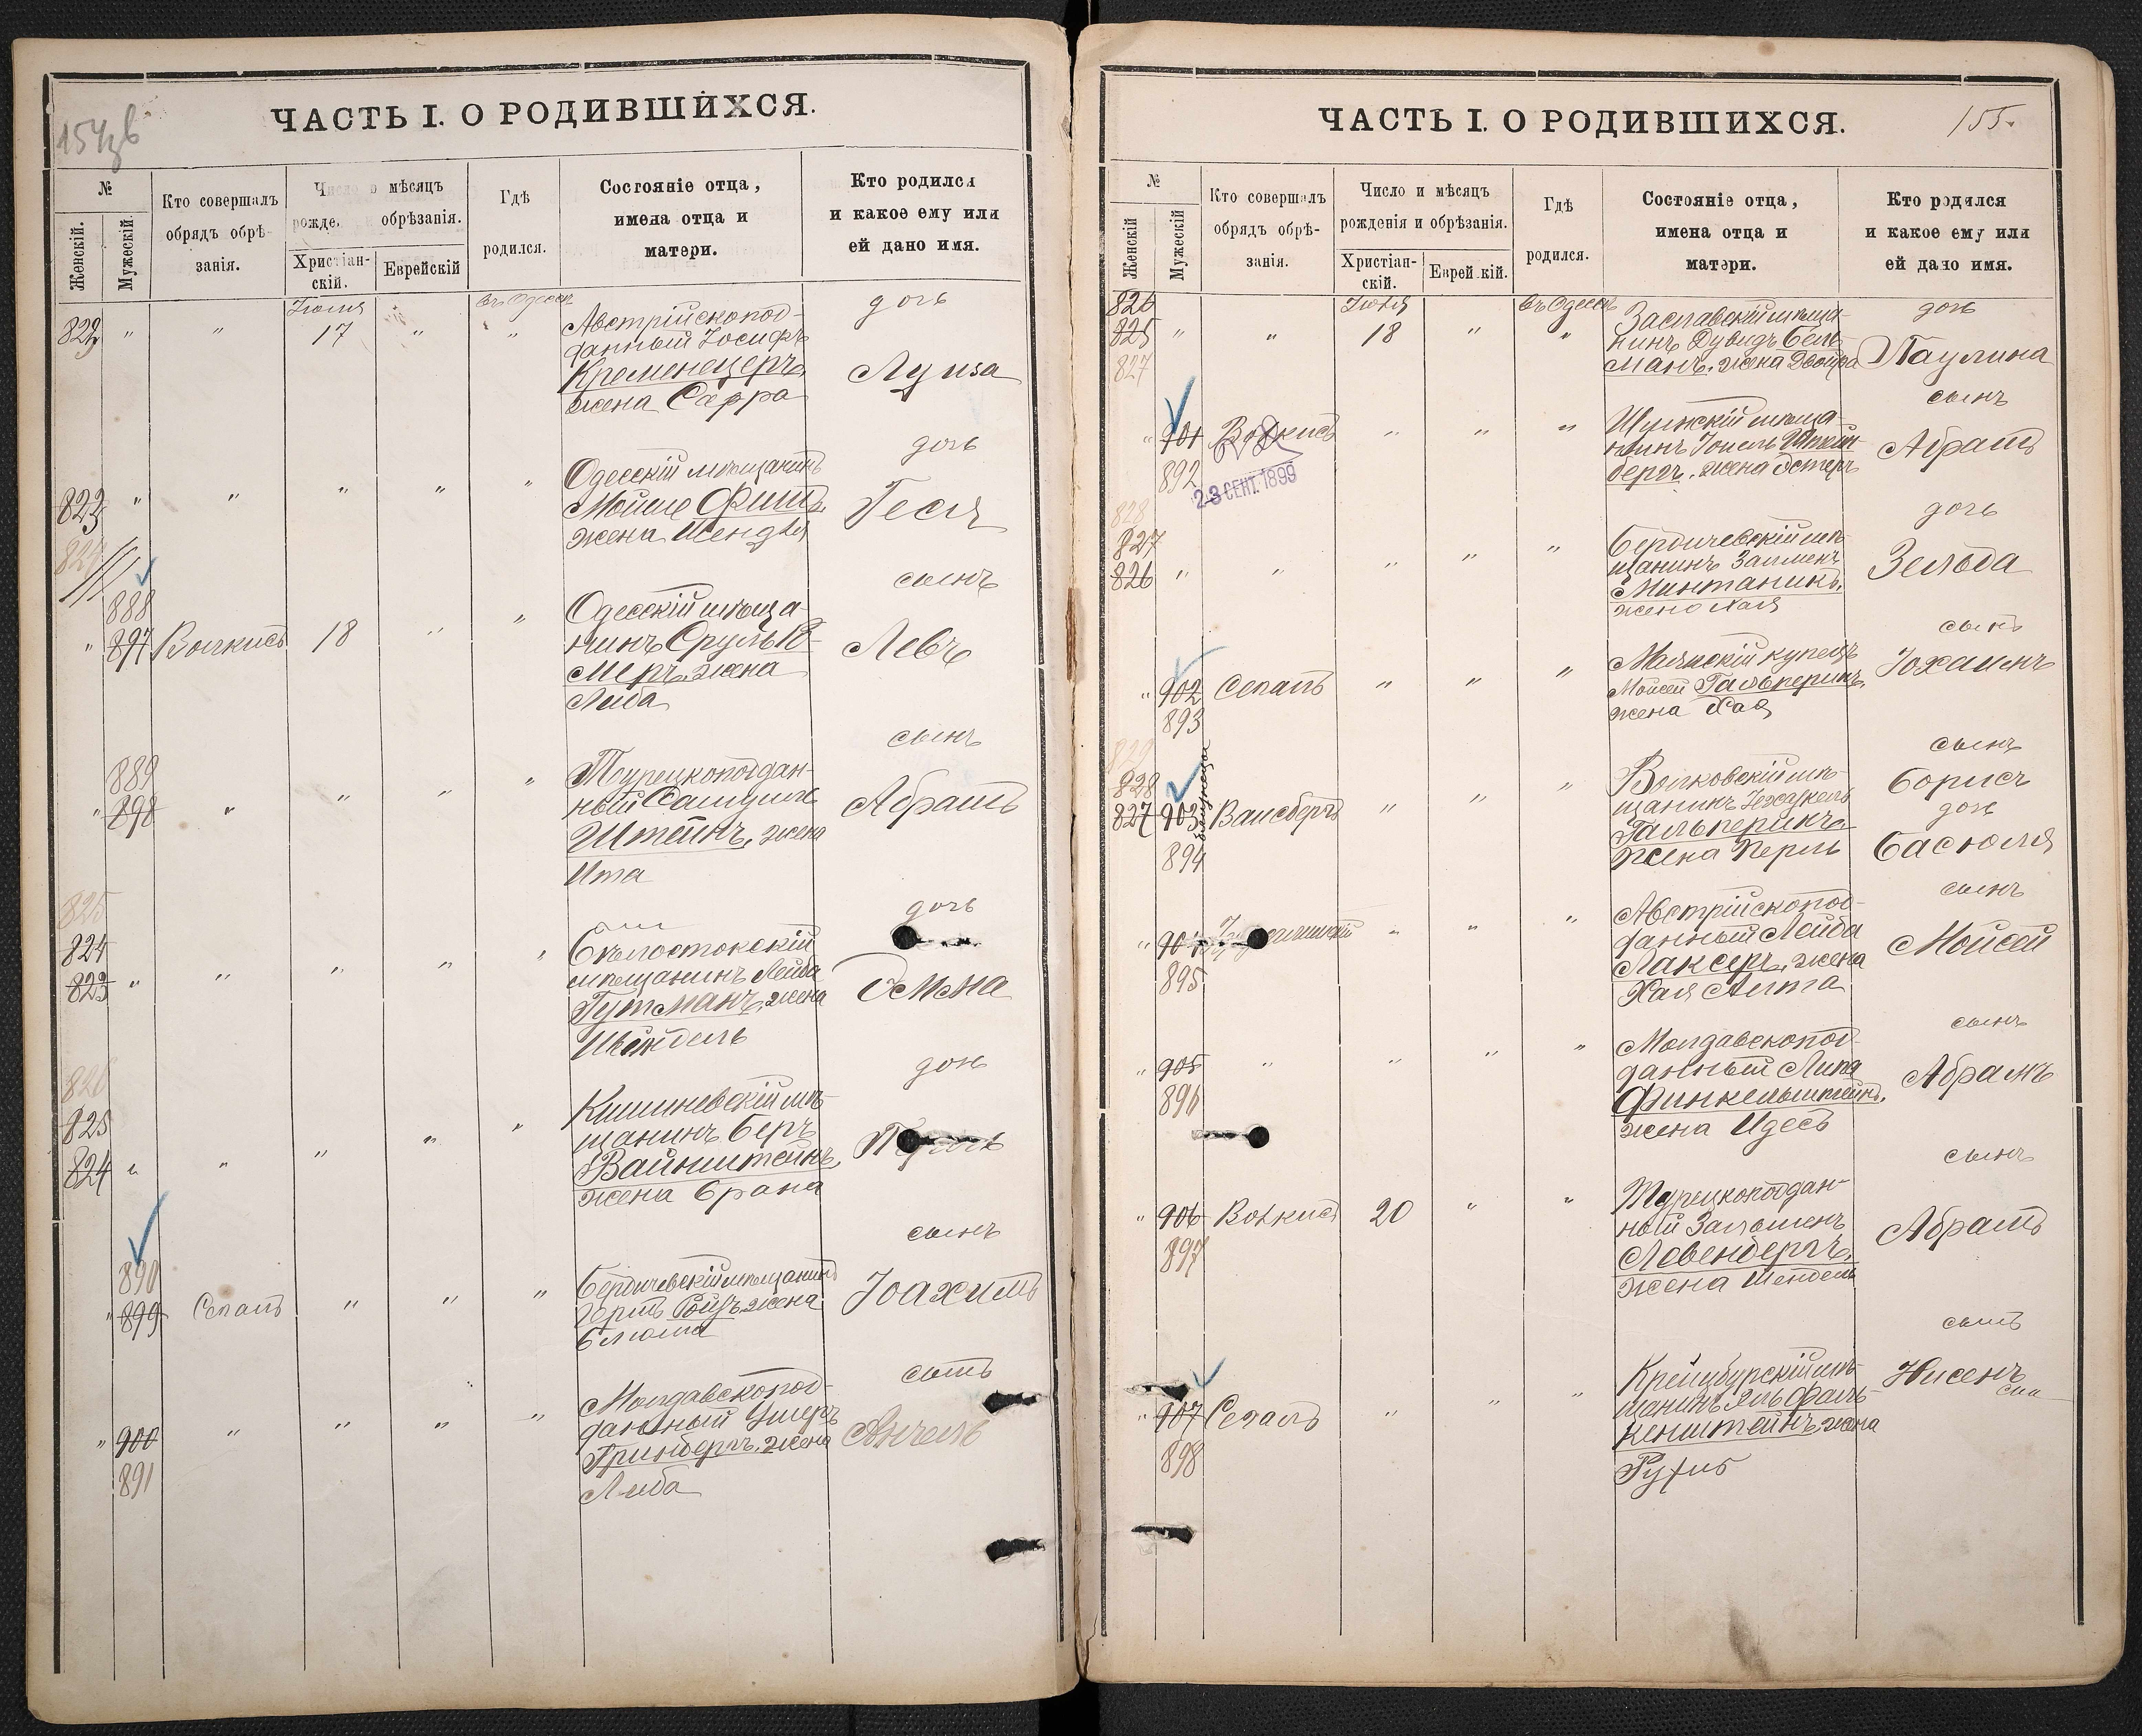 154об
ЧАСТЬ I. О РОДИВШИХСЯ.
№
Женскій.
Мужескій.
Кто совершалъ
обрядъ обрѣ-
занія.
Число и мѣсяцъ
рожде. обрѣзанія.
Христіан-
скій.
Еврейскій
Гдѣ
родился.
Состояніе отца,
имена отца и
матери.
Кто родился
и какое ему или
ей дано имя.
Іюля
17
въ Одессѣ
Австрійскопод-
данный Іосифъ
Кременецеръ,
жена Сарра
дочь
Луиза
Одесскій мѣщанинъ
Мойше Фишъ,
жена Шендля
дочь
Геся
824
888
897
Волкисъ
18
Одесскій мѣща-
нинъ Сруль
меръ, жена
Либа
сынъ
Левъ
889
898
Турецкоподдан-
ный Самуилъ
Штейнъ, жена
Ита
сынъ
Абрамъ
825
824
823
Бѣлостокскій
мѣщанинъ Лейба
Гутманъ, жена
Шейндель
дочь
Эмма
826
825
824
Кишиневскій мѣ-
щанинъ Беръ
Вайнштейнъ,
жена Брана
дочь
890
899
Сегалъ
Бердичевскій мѣщанинъ
Герш Ройз, жена
Блюма
сынъ
Іоахимъ
900
891
Молдавскопод-
данный Ушеръ
Гринбергъ, жена
Либа
сынъ
Анчель
ЧАСТЬ I. О РОДИВШИХСЯ.
155.
№
Женскій
Мужескій
Кто совершалъ
обрядъ обрѣ-
занія.
Число и мѣсяцъ
рожденія и обрѣзанія.
Христіан-
скій.
Еврей кій.
Гдѣ
родился.
Состояніе отца,
имена отца и
матери.
Кто родился
и какое ему или
ей дано имя.
826
825
827
Іюля
18
въ Одессѣ
Заславскій мѣща-
нинъ Дувидъ Бель
манъ, жена Двойра
дочь
Паулина
901
892
Волкисъ
23 СЕНТ. 1899
мѣща-
нинъ Іоиель
бергъ, жена Эстеръ
сынъ
Абрамъ
828
827
826
Бердичевскій мѣ-
щанинъ Залменъ
Минтаникъ,
жена Хая
дочь
Зельда
902
893
Сегалъ
купецъ
Мойсей Гальперинъ,
жена Хая
сынъ
Іохаимъ
829
828
827
903
894
близнецы
Вайсбергъ
мѣ-
щанинъ Іехезкель
Гальперинъ,
жена Перль
сынъ
Борисъ
дочь
Басюля
904
895
Австрійскопод-
данный Лейба
Лаксеръ, жена
Хая Алта
сынъ
Мойсей
905
896
Молдавскопод-
данный Липа
Финкельштейнъ,
жена Идесъ
сынъ
Абрамъ
906
897
Волкисъ
20
Турецкоподдан-
ный Зальменъ
Левенбергъ,
жена Шендель
сынъ
Абрамъ
907
898
Сегалъ
Крейцбурскій мѣ-
щанинъ Эль Фаль-
кенштейнъ, жена
Руфь
сынъ
Нисенъ